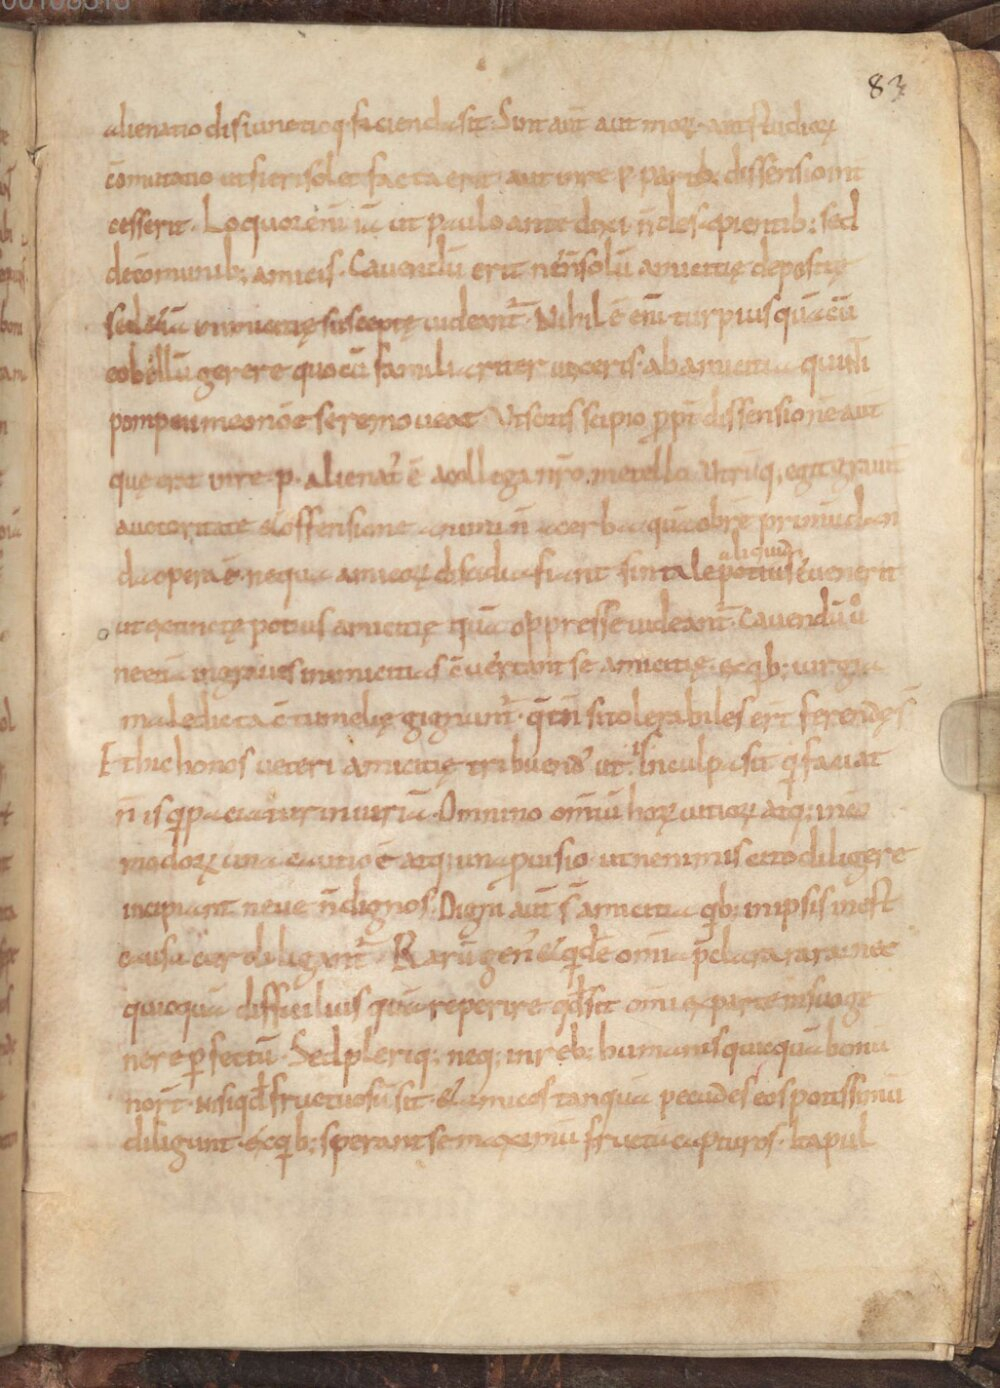 00108516
83
alienatio disiunctioq; facienda sit. Sint aut̄ aut morꝝ aut studiorꝝ
c̄mutatio ut fieri solet facta erit aut in re p partib; dissensio int
cesserit. Loquor eni᷈ iā ut paulo ante dixi n̄ de sapientib; sed
de c̄munib; amicis. Cavendū erit ne n̄ solū amicitię depositę
sed etiā inimicitię susceptę videant᷑. Nihil ē eni᷈ turpius quā cū
eo bellū gerere quo cū familiariter vixeris. ab amicitia quinti
pompeii meo nōe se removeat Ut scitis scipio ꝓpt̄ dissensionē aut
quę erat in re p. alienat᷑ ē a collega nr̄o metello. Utrūq; egit gravit̄
auctoritate & offensione animi n̄ acerba qua obrē primū dan
da opera ē nequa amicorꝝ discidia fiant sin tale aliquid potius evenerit
ut extinctę potius amicitię quā oppresse videant᷑. Cavendū ů
ne etiā in graves inimicitias c̄vertant se amicitię ex qb; iurgia
maledicta c̄tumelię gignunt᷑. q̄ tn̄ si tolerabiles ert̄ ferendę s̄
Et hic honos veteri amicitię tribuend᷑ ut is in culpa sit q faciat
n̄ is q patiatur iniuriā. Omnino omiū horꝝ vitiorꝝ atq; inco
modorꝝ una cautio ē atq; una pvisio ut ne nimis cito diligere
incipiant neve n̄ dignos. Digni aut̄ s̄ amicitia qb; in ipsis inest
causa cur diligant᷑. Rarū gen᷑ & qd̄e omia p̄clara rara nec
quicquā difficilius quā reperire qd̄ sit omi ex parte in suo ge
nere ꝑfectū. Sed pleriq; neq; in reb; humanis quicquā bonū
nort̄ nisi qd̄ fructuosū sit & amicos tanquā pecudes eos potissimū
diligunt ex qb; sperant se maximū fructū capturos. Ita pul